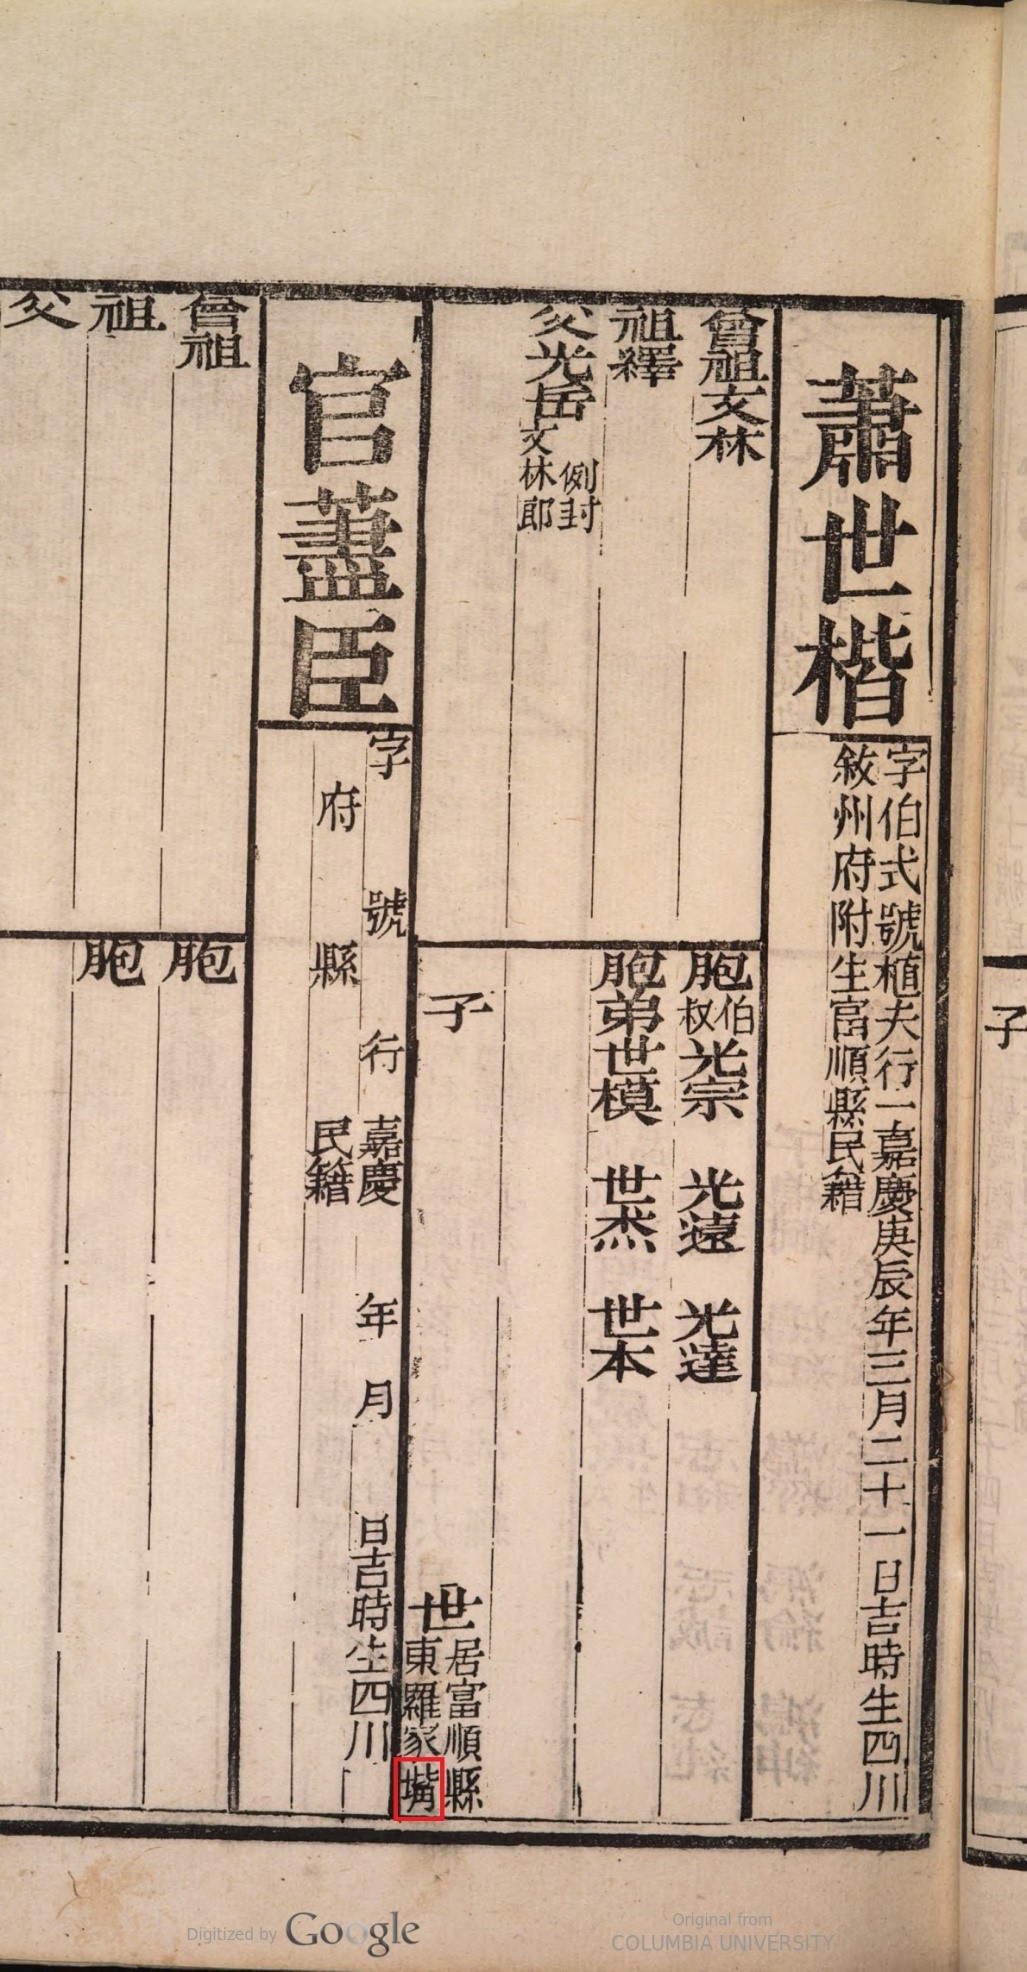 蕭世楷
字伯式號植夫行一嘉慶庚辰年三月二十一日吉時生四川
敘州府附生富順縣民籍
曾祖文林
祖繹
父光岳例封文林郎
胞伯叔光宗 光遠 光達
胞弟世模 世杰 世本
子
世居富順縣東羅家嘴
官藎臣
字 號 行 嘉慶 年 月 日吉時生四川
府 縣 民籍
曾祖
祖
父
胞
胞
子
Digitized by Google
Original from
COLUMBIA UNIVERSITY